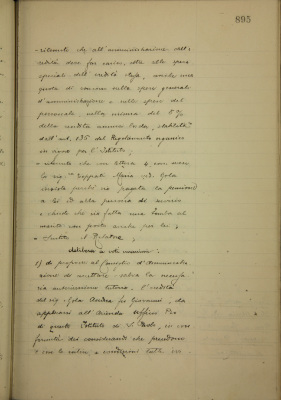 895
- ritenuto che all'amministrazione dell'
eredità deve far carico, oltre alle spese
speciali dell'eredità stessa, anche una
quota di concorso nelle spese generali
d'amministrazione e nelle spese del
personale, nella misura del
della rendita annua lorda, stabilita
dell'art. 135 del Regolamento organico
in vigore per l'Istituto;
- ritenuto che con lettera 4 corr. mese
la sig.ra Maria ved. Gola
insiste perché sia pagata la pensione
a lei ed alla persona di servizio
e chiede che sia fatta una tomba al
marito con posto anche per lei;
- Sentito il Relatore;
delibera a voti unanimi:
1) di proporre al Consiglio d'Amministra-
zione di accettare - salva la necessa-
ria autorizzazione tutoria - l'eredità
del sig. Gola Andrea fu Giovanni, da
applicarsi all'Azienda Ufficio Pio
di questo Istituto di S. Paolo, in con-
formità dei considerandi che precedono
e con le cautele e condizioni tutte in-